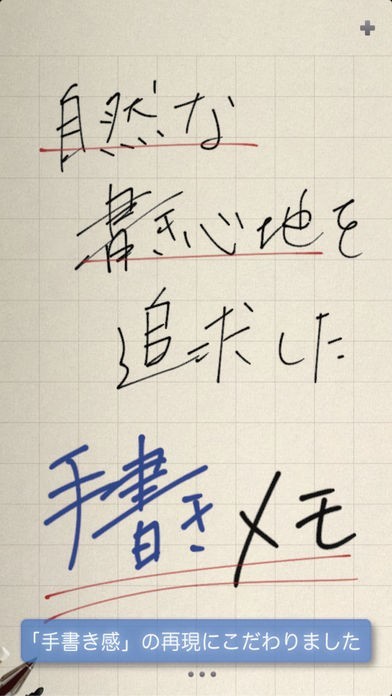 自然な
書き心地を
追求した
手書きメモ
「手書き感」の再現にこだわりました